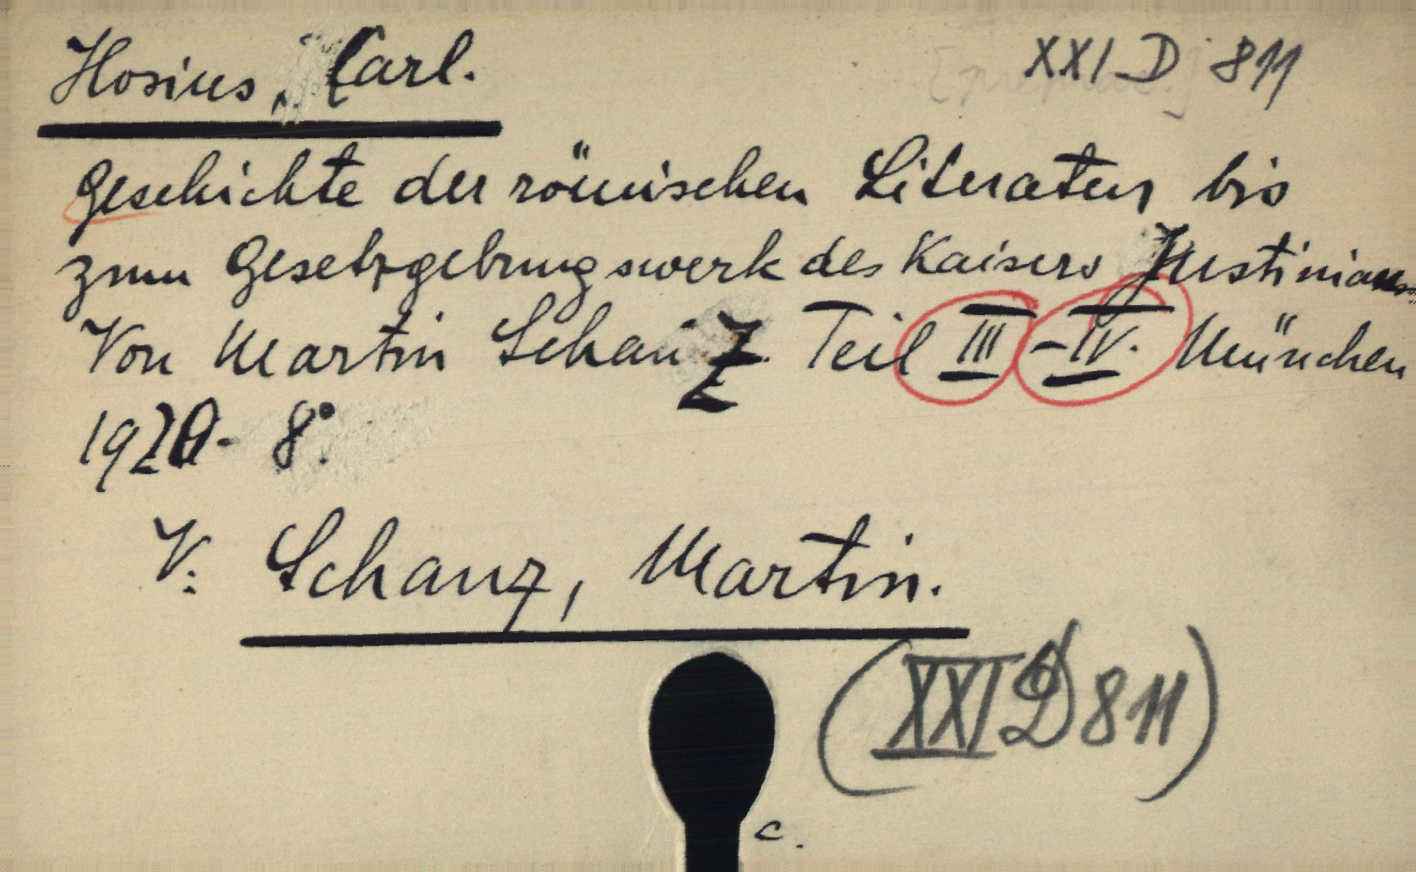 Hosius, Carl.
XXI D 811
Geschichte der römischen Literatur bis
zum Gesetzgebungswerk des Kaisers Justinians
Von Martin Schanz. Teil III-IV. München
1920- 8°.
V: Schanz, Martin.
(XXI D 811)
c.